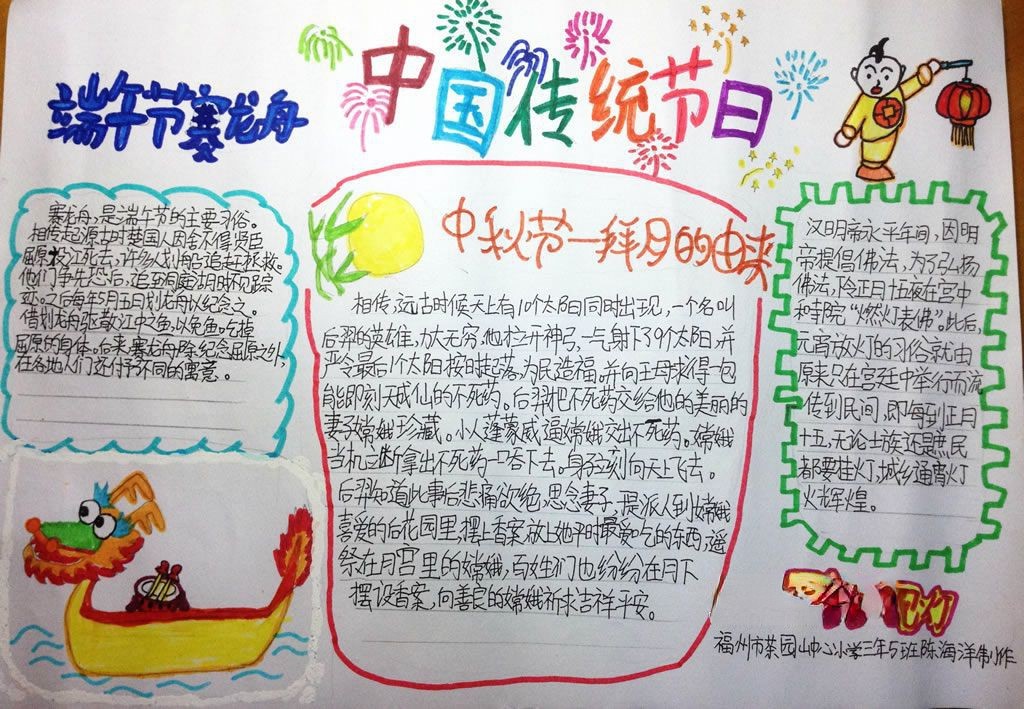 中国传统节日
端午节赛龙舟
赛龙舟，是端午节的主要习俗。
相传起源古时楚国人因舍不得贤臣
屈原投江死去，许多人划船追赶拯救。
他们争先恐后，追至洞庭湖时不见踪
迹。之后每年5月五日划龙舟以纪念之。
借划龙舟驱散江中之鱼，以免鱼吃掉
屈原的身体。后来，赛龙舟除纪念屈原之外，
在各地人们还付予不同的寓意。
中秋节—拜月的由来
相传，远古时候天上有10个太阳同时出现，一个名叫
后羿的英雄，力大无穷，他拉开神弓，一气射下了9个太阳，并
严令最后1个太阳按时起落，为民造福。并向王母求得一包
能即刻天成仙的不死药，后羿把不死药交给他的美丽的
妻子嫦娥珍藏。小人蓬蒙威逼嫦娥交出不死药。嫦娥
当机立断拿出不死药一口吞下去。身子立刻向天上飞去。
后羿知道此事后悲痛欲绝，思念妻子，是派人到嫦娥
喜爱的后花园里，摆上香案，放上她平时最爱吃的东西，遥
祭在月宫里的嫦娥，百姓们也纷纷在月下
摆设香案，向善良的嫦娥祈求吉祥平安。
汉明帝永平年间，因明
帝提倡佛法，为了弘扬
佛法，令正月十五夜在宫中
和寺院“燃灯表佛”。此后，
元宵放灯的习俗就由
原来只在宫廷中举行而流
传到民间，即每到正月
十五，无论士族还是庶民
都要挂灯，城乡通宵灯
火辉煌。
福州市茶园山中心小学三年5班陈海洋制作